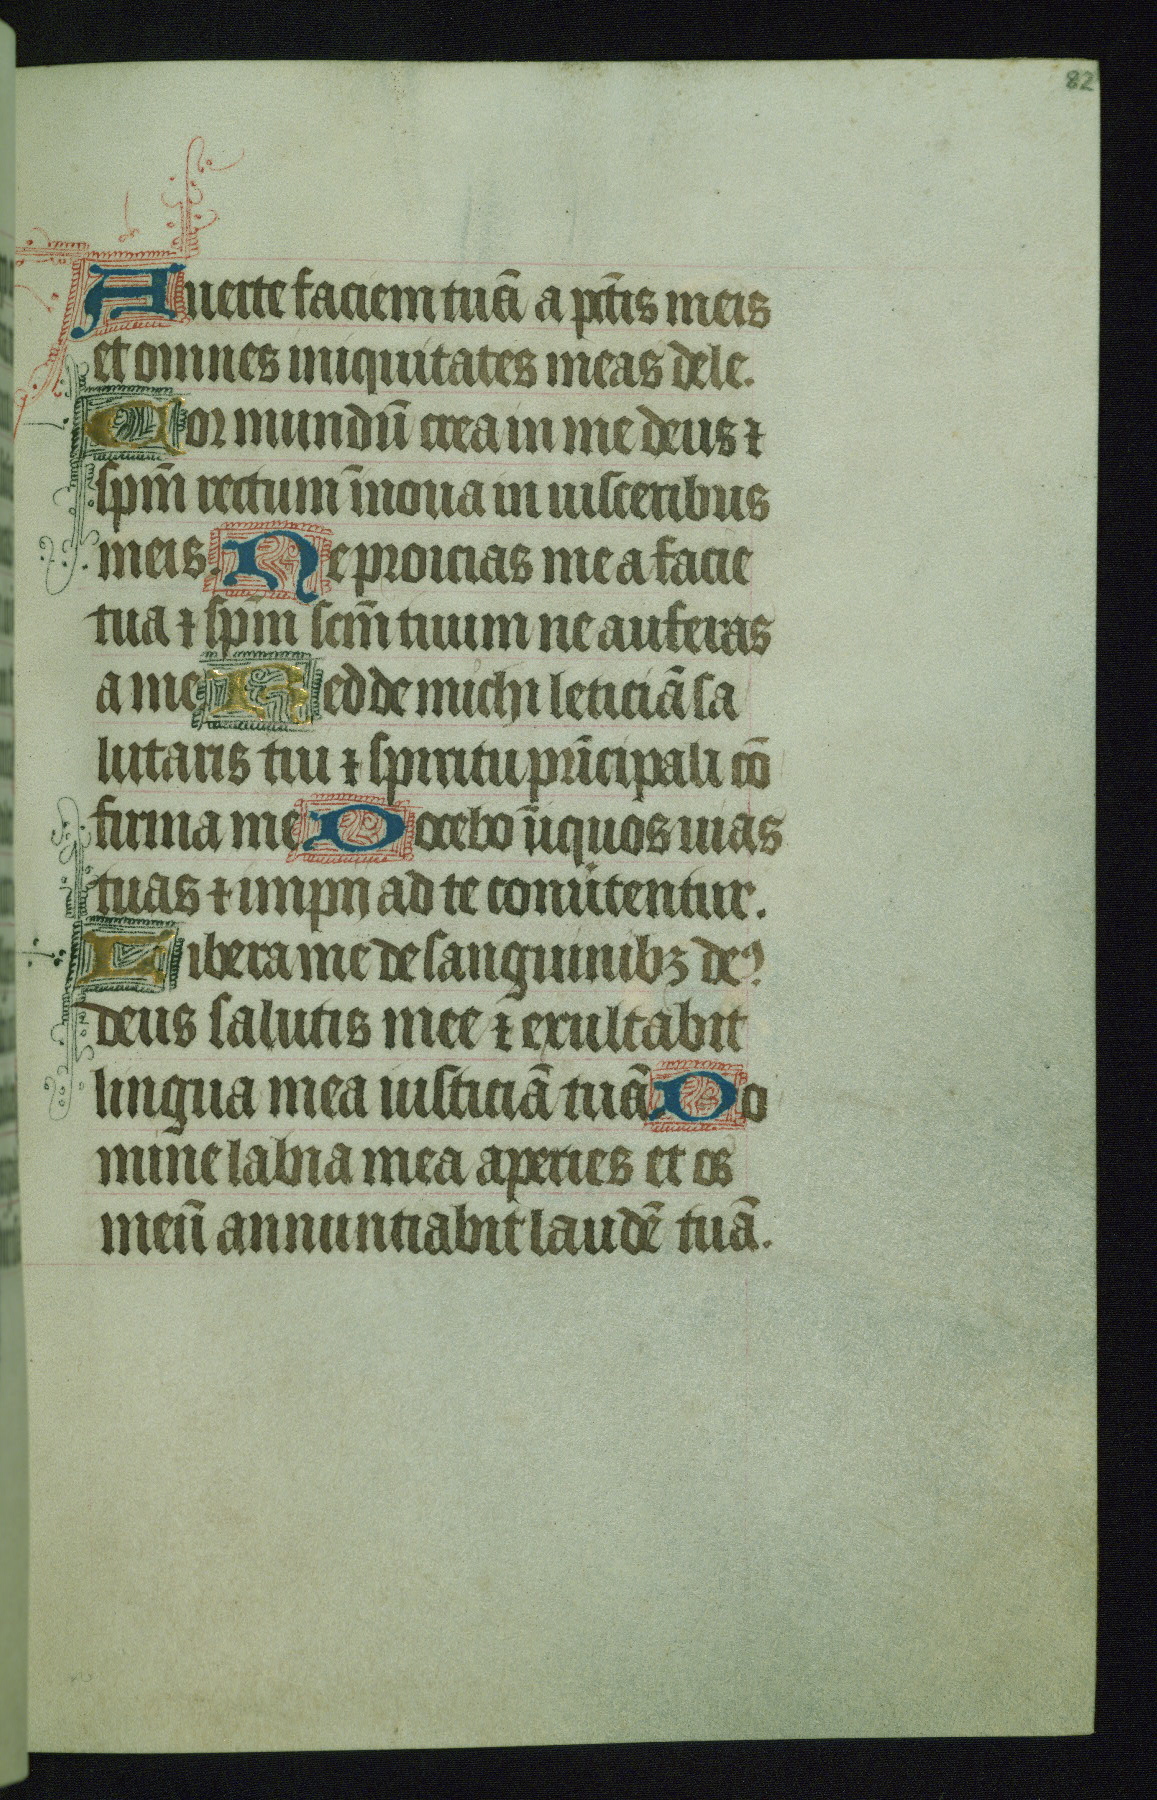 82
Auerte faciem tuā a pctīs meis
et omnes iniquitates meas dele.
Cor mundū crea in me deus ⁊
spm̄ rectum īnoua in uisceribus
meis. Ne proicias me a facie
tua ⁊ spm̄ scm̄ tuum ne auferas
a me Redde michi leticiā sa
lutaris tui ⁊ spiritu prīcipali cō
firma me Docebo īiquos uias
tuas ⁊ impij ad te conūtentur.
Libera me de sanguinibꝫ deꝰ
deus salutis mee ⁊ exultabit
lingua mea iusticiā tuā. Do
mine labia mea aperies et os
meū annuntiabit laudē tuā.